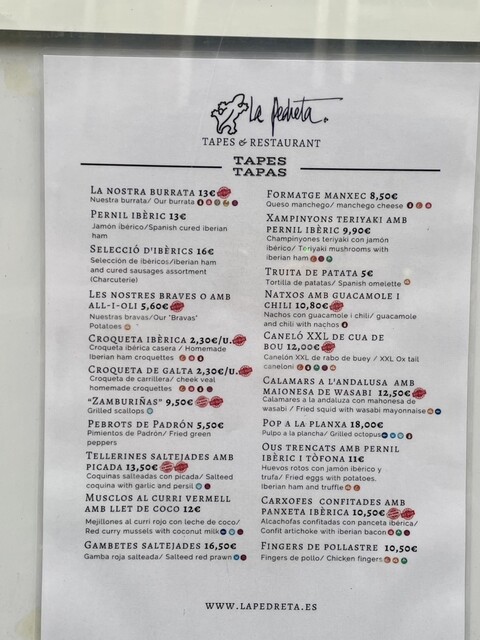 La Pedreta.
TAPES & RESTAURANT
TAPES
TAPAS
LA NOSTRA BURRATA 13€
Nuestra burrata/ Our burrata
PERNIL IBÈRIC 13€
Jamón ibérico/Spanish cured iberian
ham
SELECCIÓ D'IBÈRICS 16€
Selección de ibéricos/iberian ham
and cured sausages assortment
(Charcuterie)
LES NOSTRES BRAVES O AMB
ALL-I-OLI 5,60€
Nuestras bravas/Our "Bravas"
Potatoes
CROQUETA IBÈRICA 2,30€/U.
Croqueta ibérica casera / Homemade
Iberian ham croquettes
CROQUETA DE GALTA 2,30€/U.
Croqueta de carrillera/ cheek veal
homemade croquettes
"ZAMBURIÑAS" 9,50€
Grilled scallops
PEBROTS DE PADRÓN 5,50€
Pimientos de Padrón/ Fried green
peppers
TELLERINES SALTEJADES AMB
PICADA 13,50€
Coquinas salteadas con picada/ Salteed
coquina with garlic and persil
MUSCLOS AL CURRI VERMELL
AMB LLET DE COCO 12€
Mejillones al curri rojo con leche de coco/
Red curry mussels with coconut milk
GAMBETES SALTEJADES 16,50€
Gamba roja salteada/ Salteed red prawn
FORMATGE MANXEC 8,50€
Queso manchego/ manchego cheese
XAMPINYONS TERIYAKI AMB
PERNIL IBÈRIC 9,90€
Champinyones teriyaki con jamón
ibérico/ Teriyaki mushrooms with
iberian ham
TRUITA DE PATATA 5€
Tortilla de patatas/ Spanish omelette
NATXOS AMB GUACAMOLE I
CHILI 10,80€
Nachos con guacamole i chili/ guacamole
and chili with nachos
CANELÓ XXL DE CUA DE
BOU 12,00€
Canelón XXL de rabo de buey / XXL Ox tall
caneloni
CALAMARS A L'ANDALUSA AMB
MAIONESA DE WASABI 12,50€
Calamares a la andaluza con mahonesa de
wasabi / Fried squid with wasabi mayonnaise
POP A LA PLANXA 18,00€
Pulpo a la plancha/ Grilled octopus
OUS TRENCATS AMB PERNIL
IBÈRIC I TÒFONA 11€
Huevos rotos con jamón ibérico y
trufa/ Fried eggs with potatoes,
iberian ham and truffle
CARXOFES CONFITADES AMB
PANXETA IBÈRICA 10,50€
Alcachofas confitadas con panceta ibérica/
Confit artichoke with iberian bacon
FINGERS DE POLLASTRE 10,50€
Fingers de pollo/ Chicken fingers
WWW.LAPEDRETA.ES